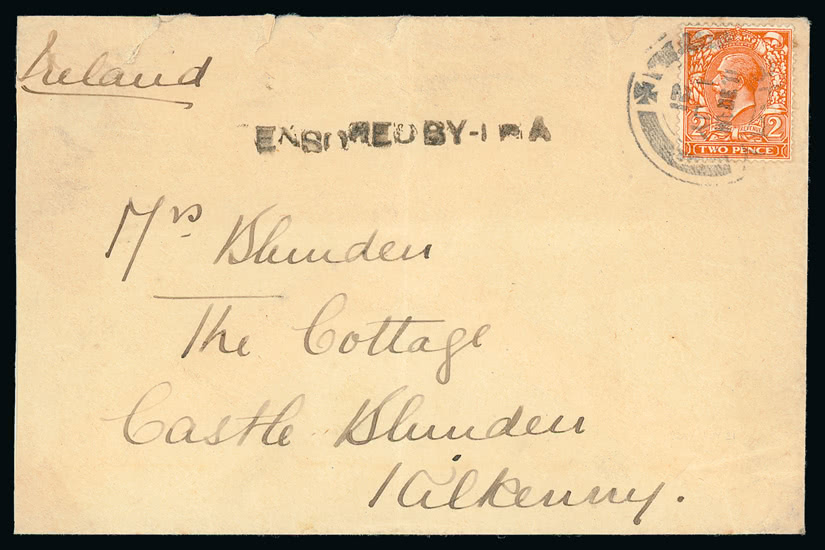 Ireland
ENSORED BY-IRA
Mrs Blunden
The Cottage
Castle Blunden
Kilkenny.
2 2
TWO PENCE